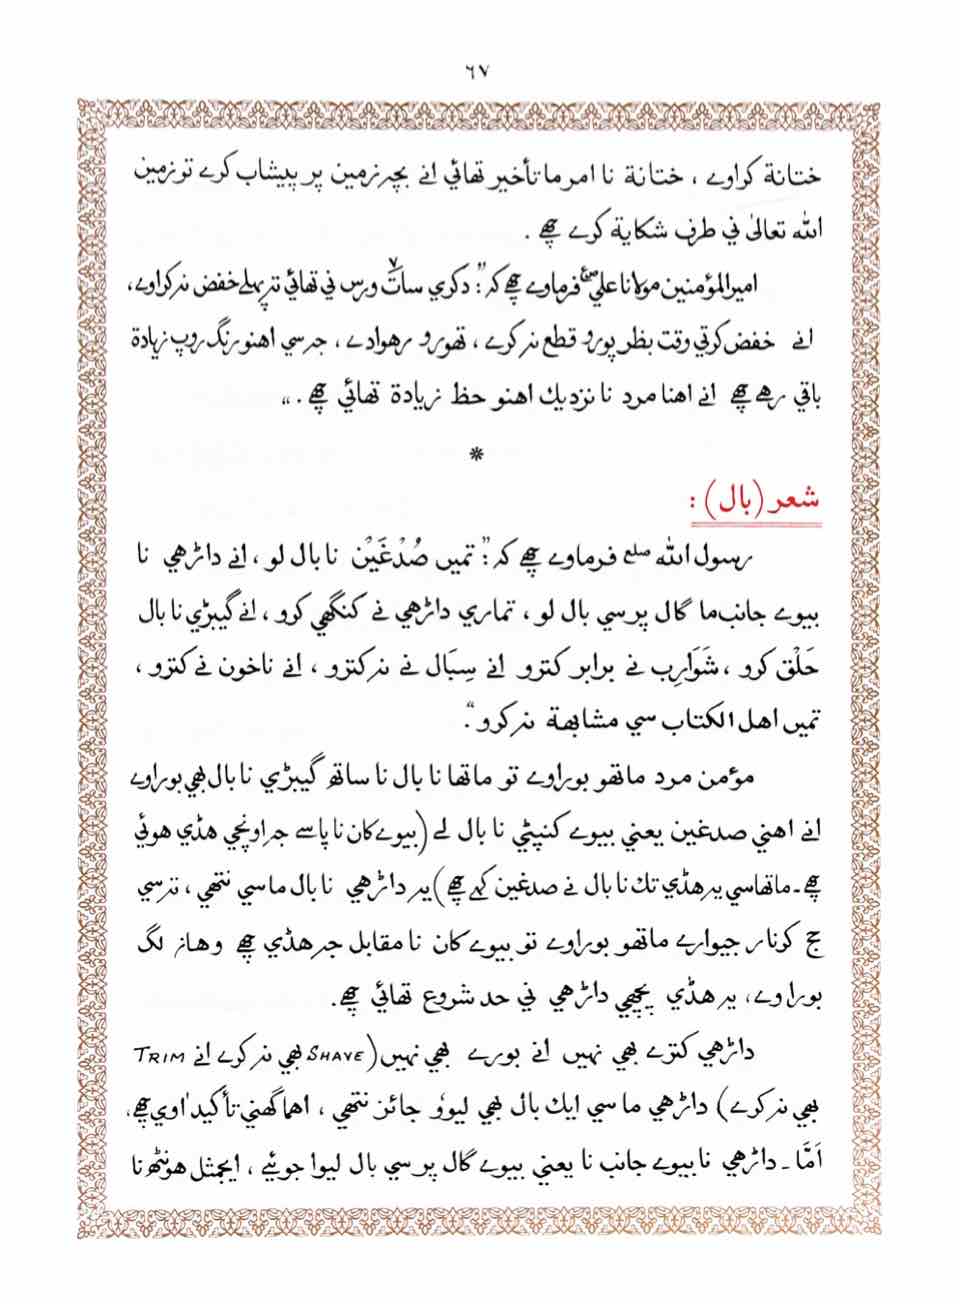 ٦٧
ختانة كراوے ، ختانة نا امر ما تأخير تھائي انے بچہ زمين پر پيشاب كرے تو زمين
الله تعالىٰ ني طرف شكاية كرے چھے .
امير المؤمنين مولانا علي صع فرماوے چھے كہ :" دكري سات ٧ ورس ني تھائي تہ پہلے خفض نہ كراوے،
انے خفض كرتي وقت بظر پورو قطع نہ كرے ، تھورو رھوادے ، جہ سي اھنو رنگ روپ زيادة
باقي رھے چھے انے اھنا مرد نا نزديك اھنو حظ زيادة تھائي چھے ."
*
شعر (بال) :
رسول الله صلع فرماوے چھے كہ :" تميں صُدْغَيْن نا بال لو ، انے داڑھي نا
بيوے جانب ما گال پر سي بال لو ، تماري داڑھي نے كنگھي كرو ، انے گيبڑي نا بال
حَلْق كرو ، شَوَارِب نے برابر كترو انے سِبَال نے نہ كترو ، انے ناخون نے كترو ،
تميں اهل الكتاب سي مشابهة نہ كرو ."
مؤمن مرد ماتھو بوراوے تو ماتھا نا بال نا ساتھ گيبڑي نا بال بھي بوراوے
انے اھني صدغين يعني بيوے كنپٹي نا بال لے (بيوے كان نا پاسے جہ اونچي ھڈي ھوئي
چھے ـ ماتھا سي يہ ھڈي تك نا بال نے صدغين كہے چھے) يہ داڑھي نا بال ما سي نتھي ، تہ سي
ج كونار جيوارے ماتھو بوراوے تو بيوے كان نا مقابل جہ ھڈي چھے وھاں لگ
بوراوے، يہ ھڈي پچھي داڑھي ني حد شروع تھائي چھے.
داڑھي كترے بھي نہيں انے بورے بھي نہيں (SHAVE بھي نہ كرے انے TRIM
بھي نہ كرے) داڑھي ما سي ايك بال بھي ليوو جائز نتھي ، اھما گھني تأكيد اوي چھے،
اَمَّا ـ داڑھي نا بيوے جانب نا يعني بيوے گال پر سي بال ليوا جوئيے ، ايجمثل ھونٹھ نا